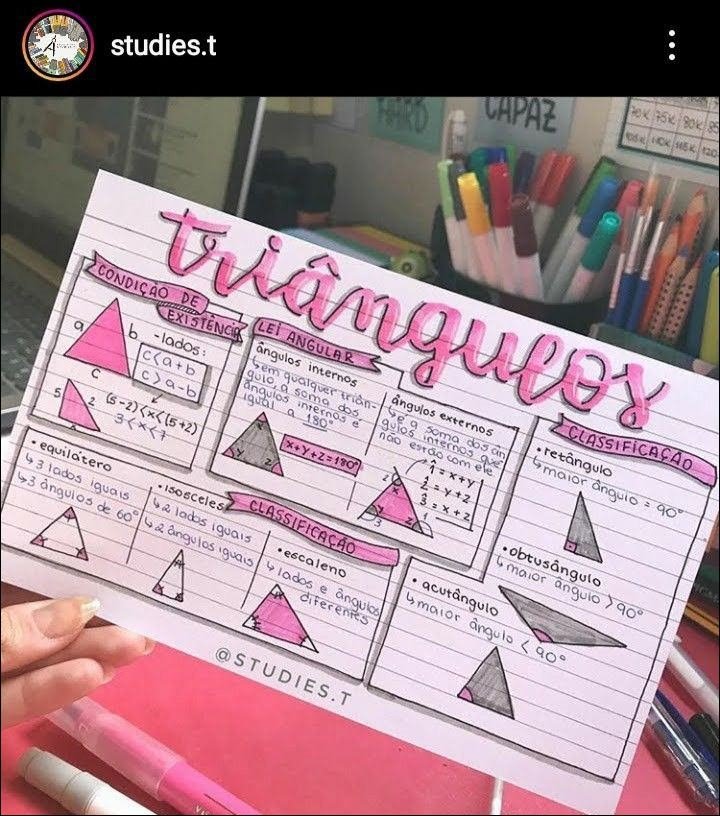 studies.t
HARD
CAPAZ
70K 75K 80K 85
triângulos
CONDIÇÃO DE
EXISTÊNCIA
a
b
c
-lados:
c<a+b
c>a-b
5
2
(5-2)<x<(5+2)
3<x<7
LEI ANGULAR
ângulos internos
↳em qualquer triân-
gulo a soma dos
ângulos internos é
igual a 180°
x+y+z=180°
ângulos externos
↳é a soma dos ân
gulos internos que
não estão com ele
1̂=x+y
2̂=y+z
3̂=x+z
2
x
y
z
3
1
CLASSIFICAÇÃO
•retângulo
↳maior ângulo = 90°
•obtusângulo
↳maior ângulo >90°
• acutângulo
↳maior ângulo < 90°
•equilátero
↳3 lados iguais
↳3 ângulos de 60°
•isosceles
↳2 lados iguais
↳2 ângulos iguais
CLASSIFICAÇÃO
•escaleno
↳lados e ângulos
diferentes
@STUDIES.T